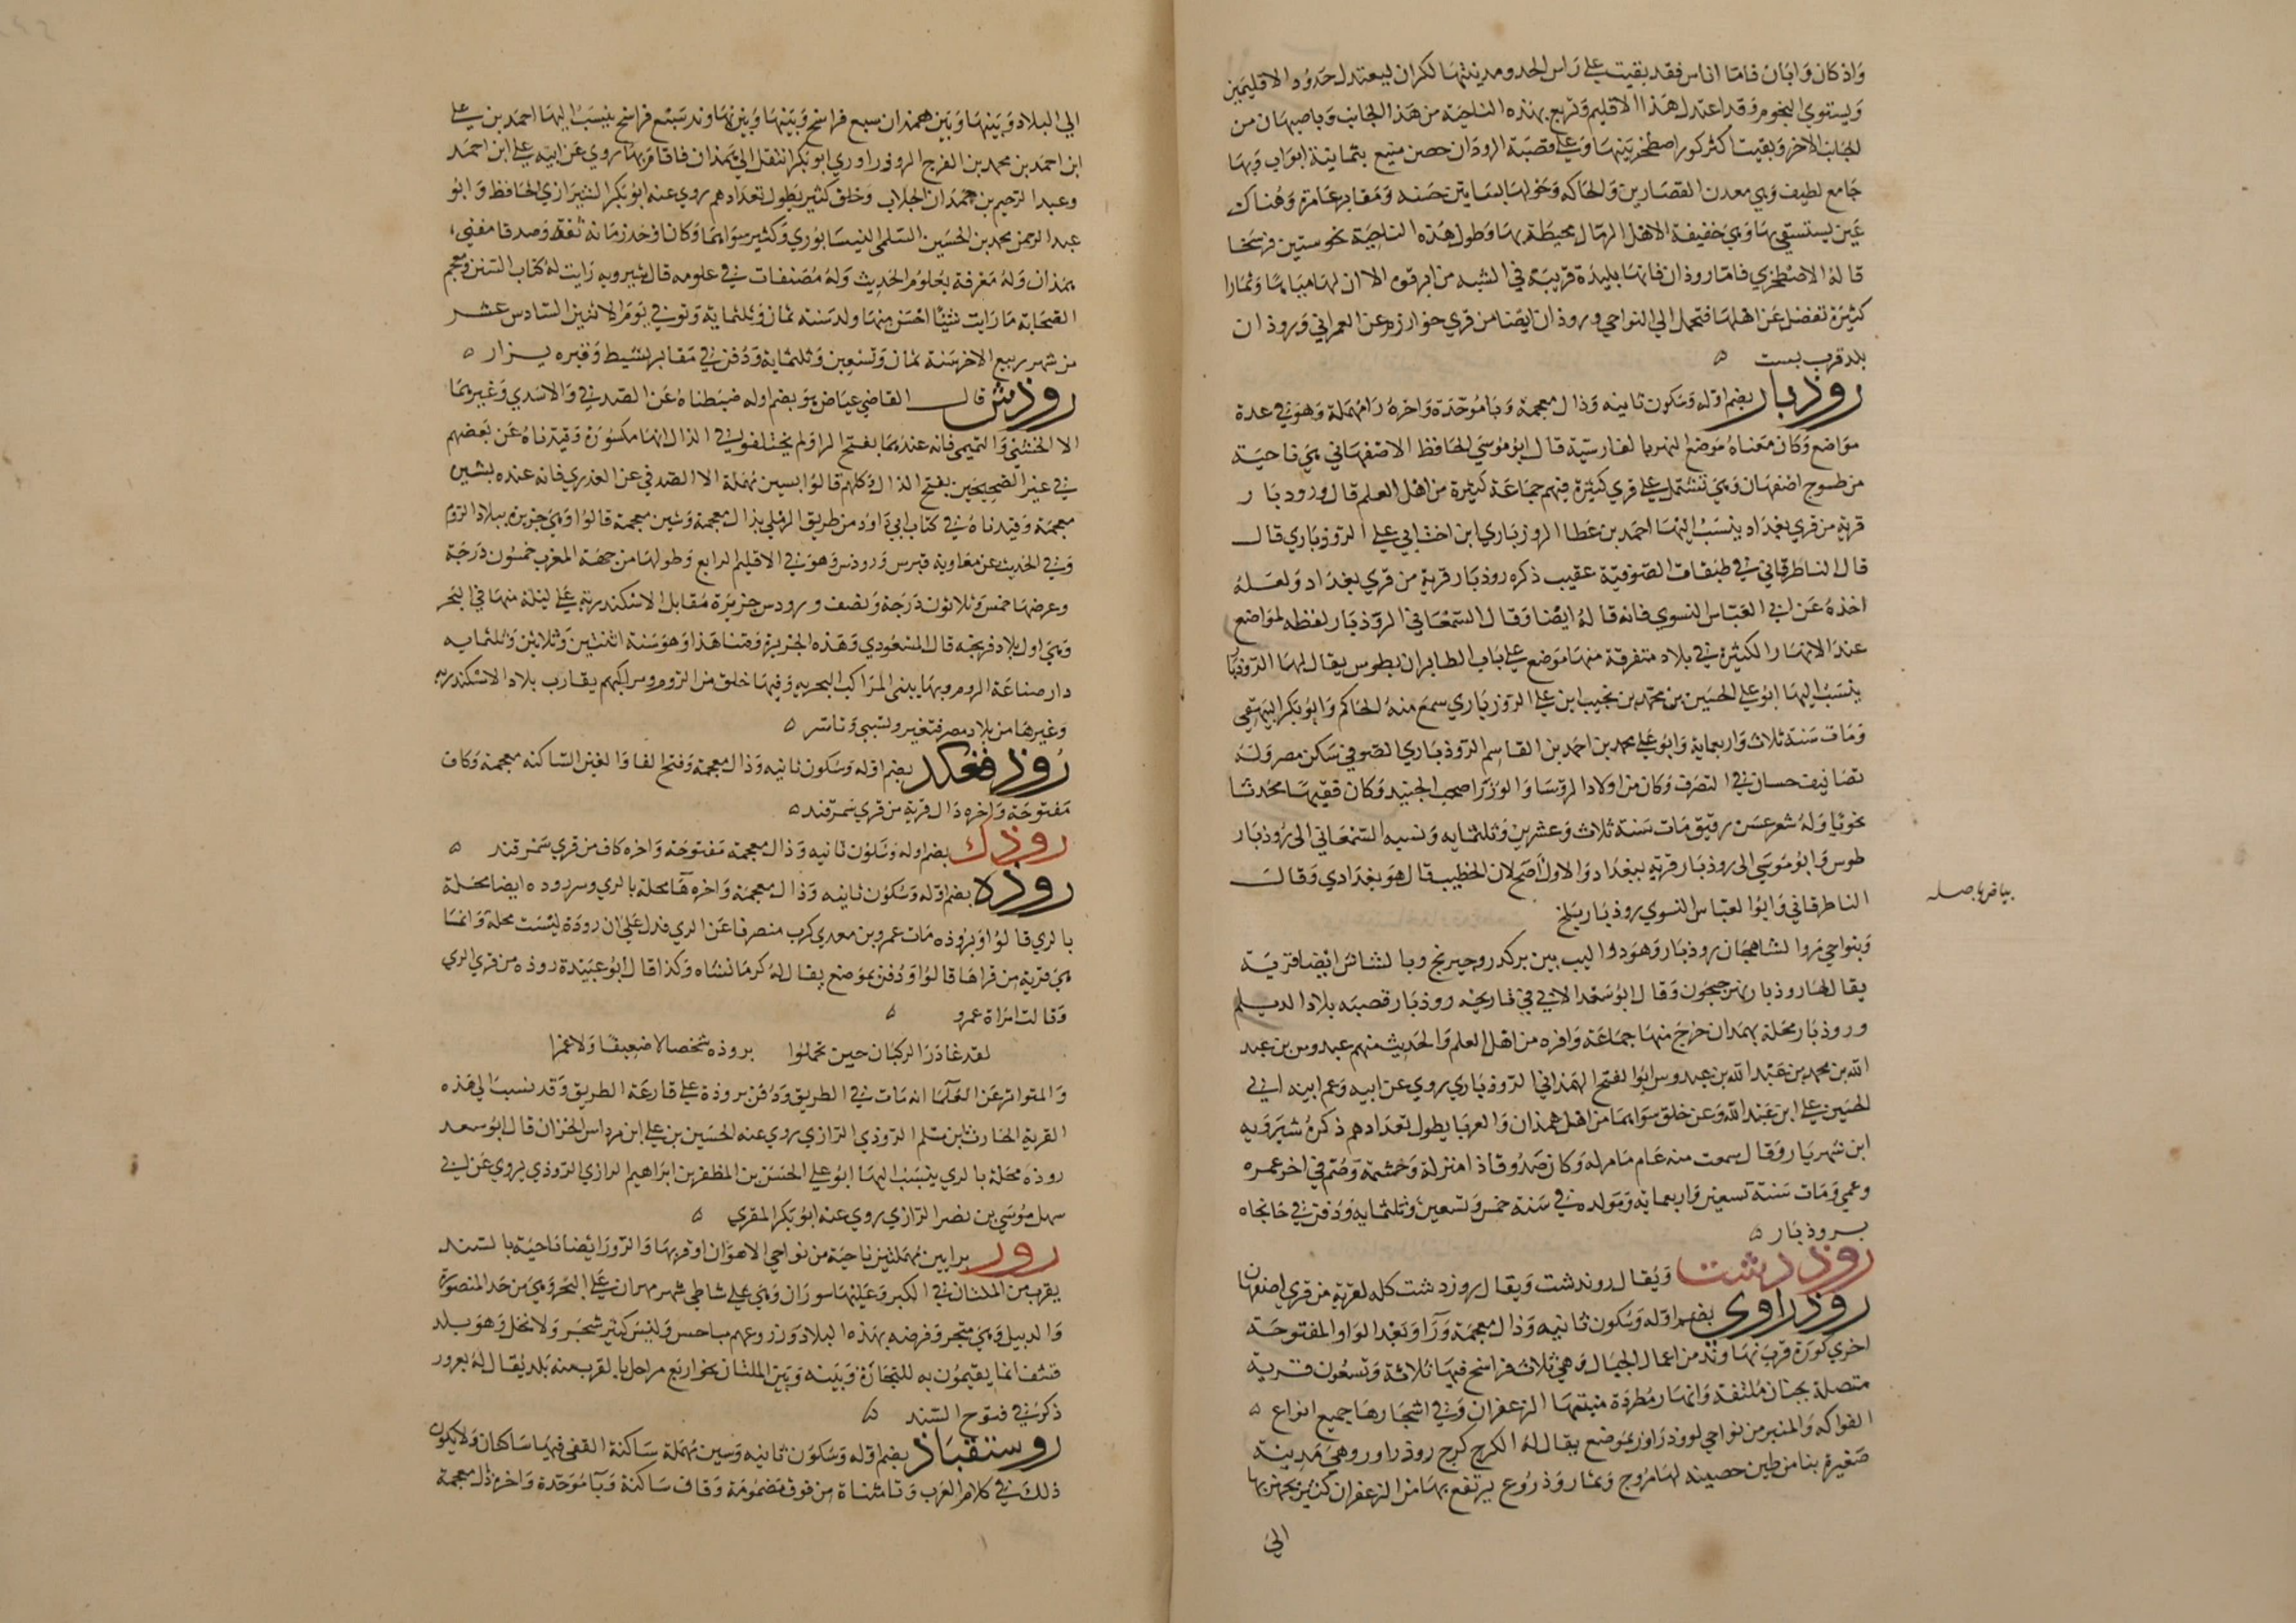 واذكان وابان فاما اناس فقد بقيت على راس الحد ومدينتها لكران ليعتدل حدود الاقليمين
ويستوي التخوم وقد اعتدل هذا الاقليم وتربع بهذه الناحية من هذا الجانب وباصبهان من
الجانب الاخر وبقيت اكثر كور اصطخر بينها وعلى قصبة الروذان حصن منيع بثمانية ابواب وبها
جامع لطيف وهي معدن القصارين والحاكه وحولها بساتين حسنه ومقابر عامرة وهناك
عين يستسقي بها وهي خفيفة الاهل الرمال محيطة بها وطول هذه الناحية نحو ستين فرسخا
قاله الاصطخري فاما روذان فانها بليدة قريبة في الشبه من ابرقوه الا ان لها مياها وثمارا
كثيرة تفضل عن اهلها فتحمل الي النواحي وروذان ايضا من قري خوارزم عن العمراني وروذان
بلد قرب بست ه
روذبار بضم اوله وسكون ثانيه وذال معجمة وبا موحدة واخره را مهملة وهو في عدة
مواضع وكان معناه موضع النهر بالفارسية قال ابو موسي الحافظ الاصفهاني هي ناحية
من طسوج اصفهان وهي تشتمل على قري كثيرة فيهم جماعة كثيرة من اهل العلم قال وروذبار
قرية من قري بغداد ينسب اليها احمد بن عطا الروذباري ابن اخت ابي علي الروذباري قال
قال الناطرقاني في طبقات الصوفية عقيب ذكره روذبار قرية من قري بغداد ولعله
اخذه عن ابي العباس النسوي فانه قاله ايضا وقال السمعاني الروذبار لفظه لمواضع
عند الانهار الكثيرة في بلاد متفرقة منها موضع على باب الطابران بطوس يقال لها الروذبار
ينسب اليها ابو علي الحسين بن محمد بن نجيب ابن علي الروذباري سمع منه الحاكم وابو بكر البيهقي
ومات سنة ثلاث واربعماية وابو علي محمد بن احمد بن القاسم الروذباري الصوفي سكن مصر وله
تصانيف حسان في التصرف وكان من اولاد الروسا والوزرا صحب الجنيد وكان فقيها محدثا
نحويا وله شعر حسن رقيق مات سنة ثلاث وعشرين وثلثمايه ونسبه السمعاني الى روذبار
طوس وابو موسي الى روذبار قرية ببغداد والاول اصح لان الخطيب قال هو بغدادي وقال
الناطرقاني وابو العباس النسوي روذبار ببلخ
بياض باصله
وبنواحي مرو الشاهجان روذبار وهو دواليب بين بركدز وجيرنج وبالشاش ايضا قرية
يقال لها روذبار نهر جيحون وقال ابو سعد الابي في تاريخه روذبار قصبه بلاد الديلم
وروذبار محلة بهمدان خرج منها جماعة وافره من اهل العلم والحديث منهم عبدوس بن عبد
الله بن محمد بن عبد الله بن عبدوس ابو الفتح الهمذاني الروذباري روي عن ابيه وعم ابيه ابي
الحسين علي ابن عبد الله وعن خلق سواهما من اهل همذان والغربا يطول تعدادهم ذكره شيرويه
ابن شهريار وقال سمعت منه عام ما مر له وكان صدوقا ذا منزلة وحشمه وصم في اخر عمره
وعمي ومات سنة تسعين واربعمائة ومولده في سنة خمس وتسعين وثلثمايه ودفن في خانجاه
بروذبار ه
روذدشت ويقال رونداشت ويقال روزدشت كله لقرية من قري اصفهان
روذراوى بضم اوله وسكون ثانيه وذال معجمة ورا وبعد الواو المفتوحة
اخري كورة قرب نهاوند من اعمال الجبال وهي ثلاث فراسخ فيها ثلاثة وتسعون قرية
متصلة بجنان ملتفه وانهار مطردة منبتها الزعفران وفي اشجارها جميع انواع ه
الفواكه والمنبر من نواحي لووذراور بموضع يقال له الكرج كرج روذراور وهي مدينة
صغيرة بنا من طين حصينه لها مروج وثمار وزروع يرتفع بها من الزعفران كثير يجهز بها
الى
الي البلاد وبينها وبين همدان سبع فراسخ وبينها وبين نهاوند سبع فراسخ ينسب اليها احمد بن علي
ابن احمد بن محمد بن الفرج الروذراوري ابو بكر انتقل الي همذان فاقام بها روي عن ابيه علي ابن احمد
وعبد الرحيم بن حمدان الجلاب وخلق كثير يطول تعدادهم روي عنه ابو بكر الشيرازي الحافظ وابو
عبد الرحمن محمد بن الحسين السلمي النيسابوري وكثير سواهما وكان اوحد زمانه ثقة وصدقا مفتي
بهمذان وله معرفة بعلوم الحديث وله مصنفات في علومه قال شيرويه رايت له كتاب السنن ومعجم
الصحابة ما رايت شيئا احسن منها ولد سنة ثمان وثلثماية وتوفي يوم الاثنين السادس عشر
من شهر ربيع الاخر سنة ثمان وتسعين وثلثماية ودفن في مقابر نشيط وقبره يزار ه
روذس قال القاضي عياض هو بضم اوله ضبطناه عن الصدفي والاسدي وغيرهما
الا الخشني والتميمي فانه عندهما بفتح الرا ولم يختلفو في الذال انها مكسورة وقيدناه عن بعضهم
في غير الصحيحين بفتح الذال وكلهم قالوا بسين مهملة الا الصدفي عن العذري فانه عنده بشين
معجمة وقيدناه في كتاب ابي داود من طريق الرملي بذال معجمة وشين معجمة قالوا وهي جزيره ببلاد الروم
وفي الحديث عن معاوية قبرس وروذس وهو في الاقليم الرابع وطولها من جهة المغرب خمسون درجة
وعرضها خمس وثلاثون درجة ونصف ورودس جزيرة مقابل الاسكندرية على ليلة منها في البحر
وهي اول بلاد فرنجه قال المسعودي وهذه الجزيرة وقتنا هذا وهو سنة اثنتين وثلاثين وثلثمايه
دار صناعة الروم وبها يبنى المراكب البحريه وفيها خلق من الروم ومراكبهم يقارب بلاد الاسكندريه
وغيرها من بلاد مصر فتغير وتسبي وتاسر ه
روذفغكد بضم اوله وسكون ثانيه وذال معجمة وفتح الفا والغين الساكنه معجمة وكاف
مفتوحة واخره دال قرية من قري سمرقند ه
روذك بضم اوله وسكون ثانيه وذال معجمة مفتوحة واخره كاف من قري سمرقند ه
روذه بضم اوله وسكون ثانيه وذال معجمة واخره ها محلة بالري وسرروده ايضا محلة
بالري قالوا وبروذه مات عمرو بن معدي كرب منصرفا عن الري فدل على ان روذة ليست محلة وانما
هي قرية من قراها قالوا ودفن بموضع يقال له كرمانشاه وكذا قال ابو عبيدة روذه من قري الري
وقالت امراة عمرو ه
لقد غادر الركبان حين تحملوا بروذه شخصا لا ضعيفا ولا غمرا
والمتواتر عن العلما انه مات في الطريق ودفن بروذة على قارعة الطريق وقد نسب الي هذه
القرية الحارث ابن مسلم الروذي الرازي روي عنه الحسين بن علي ابن مرداس الخزان قال ابو سعد
روذه محلة بالري ينسب اليها ابو علي الحسن بن المظفر بن ابراهيم الرازي الروذي يروي عن ابي
سهل موسي بن نصر الرازي روي عنه ابو بكر المقري ه
رور برايين مهملتين ناحية من نواحي الاهوان او قربها والرور ايضا ناحية بالسند
يقرب من الملتان في الكبر وعليها سوران وهي على شاطي شهر مهران على البحر وهي من حد المنصورة
والدبيل وهي متجر وفرضه بهذه البلاد وزروعهم مباخس وليس كثير شجر ولا نخل وهو بلد
قشف انما يقيمون به للتجارة وبينه وبين الملتان نحو اربع مراحل بالقرب منه بلد يقال له بعرور
ذكر في فتوح السند ه
روستقباذ بضم اوله وسكون ثانيه وسين مهملة ساكنة القفي فيها ساكنان ولا يكون
ذلك في كلام العرب وتا مثناة من فوق مضمومة وقاف ساكنة وبا موحدة واخره ذال معجمة